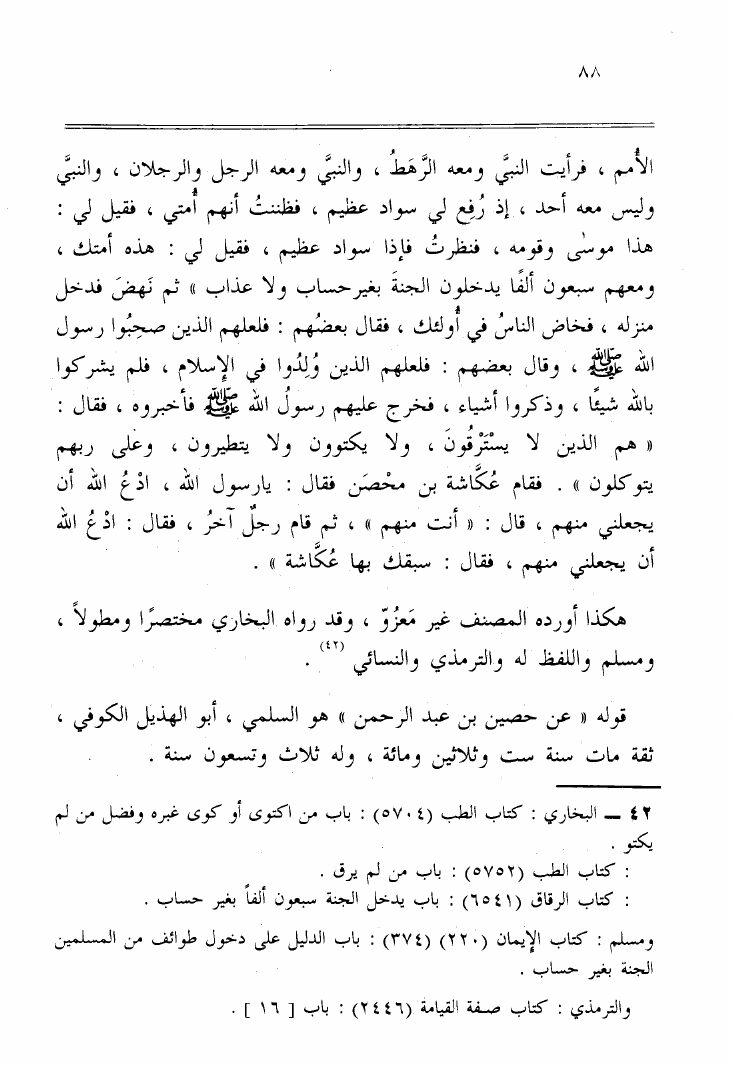 ٨٨
الأُمم ، فرأيت النبيَّ ومعه الرَّهَطُ ، والنبيَّ ومعه الرجل والرجلان ، والنبيَّ
وليس معه أحد ، إذ رُفِع لي سواد عظيم ، فظننتُ أنهم أُمتي ، فقيل لي :
هذا موسٰى وقومه ، فنظرتُ فإذا سواد عظيم ، فقيل لي : هذه أمتك ،
ومعهم سبعون ألفًا يدخلون الجنةَ بغيرحساب ولا عذاب » ثم نَهضَ فدخل
منزله ، فخاض الناسُ في أُولئك ، فقال بعضُهم : فلعلهم الذين صحِبُوا رسول
الله ﷺ ، وقال بعضهم : فلعلهم الذين وُلِدُوا في الإِسلام ، فلم يشركوا
بالله شيئًا ، وذكروا أشياء ، فخرج عليهم رسولُ الله ﷺ فأخبروه ، فقال :
« هم الذين لا يسْتَرْقُونَ ، ولا يكتوون ولا يتطيرون ، وعلى ربهم
يتوكلون » . فقام عُكَّاشة بن محْصَن فقال : يارسول الله ، ادْعُ الله أن
يجعلني منهم ، قال : « أنت منهم » ، ثم قام رجلٌ آخرُ ، فقال : ادْعُ الله
أن يجعلني منهم ، فقال : سبقك بها عُكَّاشة » .
هكذا أورده المصنف غير مَعزُوّ ، وقد رواه البخاري مختصرًا ومطولاً ،
ومسلم واللفظ له والترمذي والنسائي (٤٢) .
قوله « عن حصين بن عبد الرحمن » هو السلمي ، أبو الهذيل الكوفي ،
ثقة مات سنة ست وثلاثين ومائة ، وله ثلاث وتسعون سنة .
٤٢ ــ البخاري : كتاب الطب (٥٧٠٤) : باب من اكتوى أو كوى غيره وفضل من لم
يكتو .
: كتاب الطب (٥٧٥٢) : باب من لم يرق .
: كتاب الرقاق (٦٥٤١) : باب يدخل الجنة سبعون ألفاً بغير حساب .
ومسلم : كتاب الإِيمان (٢٢٠) (٣٧٤) : باب الدليل على دخول طوائف من المسلمين
الجنة بغير حساب .
والترمذي : كتاب صفة القيامة (٢٤٤٦) : باب [ ١٦ ] .